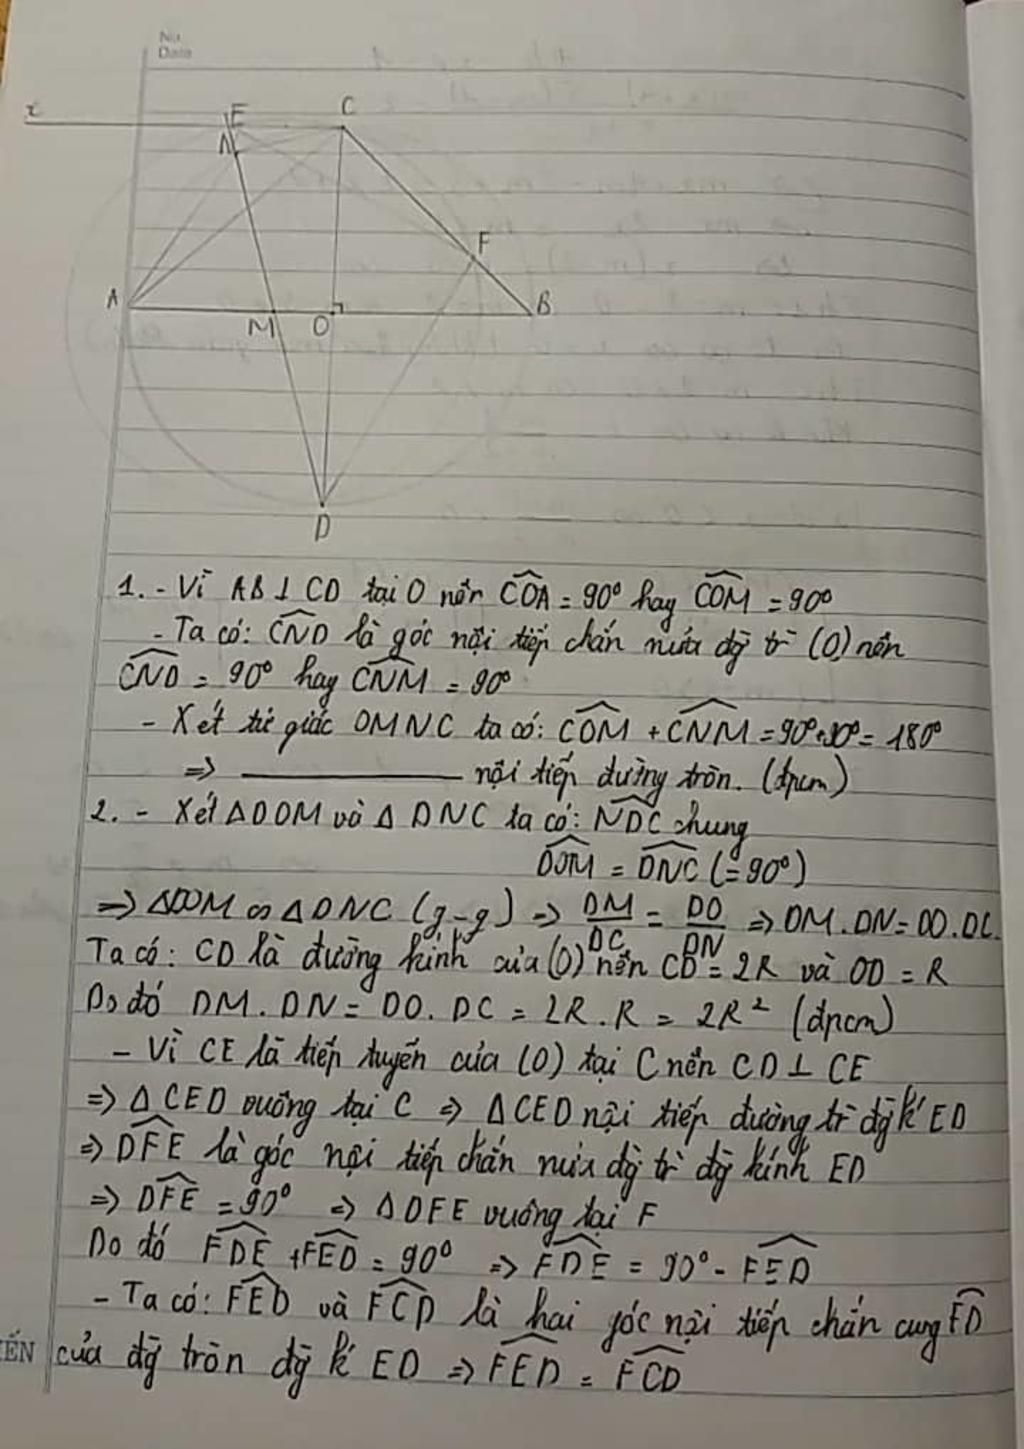 No.
Date
x
E
C
N
F
A
M
O
B
D
1. - Vì AB ⊥ CD tại O nên \widehat{COA} = 90° hay \widehat{COM} = 90°
- Ta có: \widehat{CND} là góc nội tiếp chắn nửa đg tr (O) nên
\widehat{CND} = 90° hay \widehat{CNM} = 90°
- Xét tứ giác OMNC ta có: \widehat{COM} + \widehat{CNM} = 90°+90° = 180°
=> ———— nội tiếp đường tròn. (đpcm)
2. - Xét ΔDOM và Δ DNC ta có: \widehat{NDC} chung
\widehat{DOM} = \widehat{DNC} (=90°)
=> ΔDOM ∽ ΔDNC (g-g) => DM/DC = DO/DN => DM.DN = DO.DC.
Ta có: CD là đường kính của (O) nên CD = 2R và OD = R
Do đó DM.DN = DO.DC = 2R.R = 2R² (đpcm)
- Vì CE là tiếp tuyến của (O) tại C nên CD ⊥ CE
=> Δ CED vuông tại C => ΔCED nội tiếp đường tr đg k' ED
=> \widehat{DFE} là góc nội tiếp chắn nửa đg tr đg kính ED
=> \widehat{DFE} = 90° => Δ DFE vuông tại F
Do đó \widehat{FDE} + \widehat{FED} = 90° => \widehat{FDE} = 90° - \widehat{FED}
- Ta có: \widehat{FED} và \widehat{FCD} là hai góc nội tiếp chắn cung \widehat{FD}
ẾN của đg tròn đg k' ED => \widehat{FED} = \widehat{FCD}